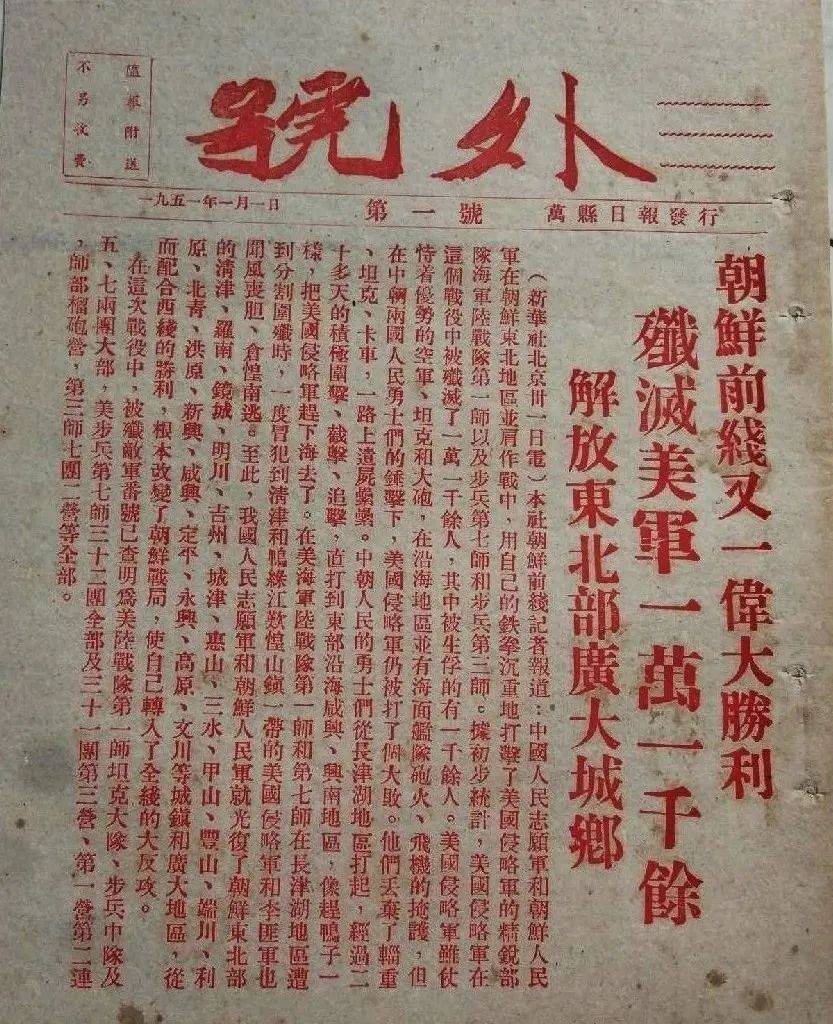 號外
隨報附送
不另收費
一九五一年一月一日 第一號 萬縣日報發行
朝鮮前綫又一偉大勝利
殲滅美軍一萬一千餘
解放東北部廣大城鄉
（新華社北京卅一日電）本社朝鮮前綫記者報道：中國人民志願軍和朝鮮人民
軍在朝鮮東北地區並肩作戰中，用自己的鉄拳沉重地打擊了美國侵略軍的精銳部
隊海軍陸戰隊第一師以及步兵第七師和步兵第三師。據初步統計，美國侵略軍在
這個戰役中被殲滅了一萬一千餘人，其中被生俘的有一千餘人。美國侵略軍雖仗
恃着優勢的空軍、坦克和大砲，在沿海地區並有海面艦隊砲火、飛機的掩護，但
在中朝兩國人民勇士們的錘擊下，美國侵略軍仍被打了個大敗。他們丟棄了輜重
、坦克、卡車，一路上遺屍纍纍。中朝人民的勇士們從長津湖地區打起，經過二
十多天的積極圍擊、截擊、追擊，直打到東部沿海咸興、興南地區，像趕鴨子一
樣，把美國侵略軍趕下海去了。在美海軍陸戰隊第一師和第七師在長津湖地區遭
到分割圍殲時，一度冒犯到淸津和鴨綠江欵惶山鎭一帶的美國侵略軍和李匪軍也
聞風喪胆、倉惶南逃。至此，我國人民志願軍和朝鮮人民軍就光復了朝鮮東北部
的淸津、羅南、鏡城、明川、吉州、城津、惠山、三水、甲山、豐山、端川、利
原、北靑、洪原、新興、咸興、定平、永興、高原、文川等城鎭和廣大地區，從
而配合西綫的勝利，根本改變了朝鮮戰局，使自己轉入了全綫的大反攻。
在這次戰役中，被殲敵軍番號已查明爲美陸戰隊第一師坦克大隊、步兵中隊及
五、七兩團大部，美步兵第七師三十二團全部及三十一團第三營、第一營第二連
，師部榴砲營，第三師七團一營等全部。